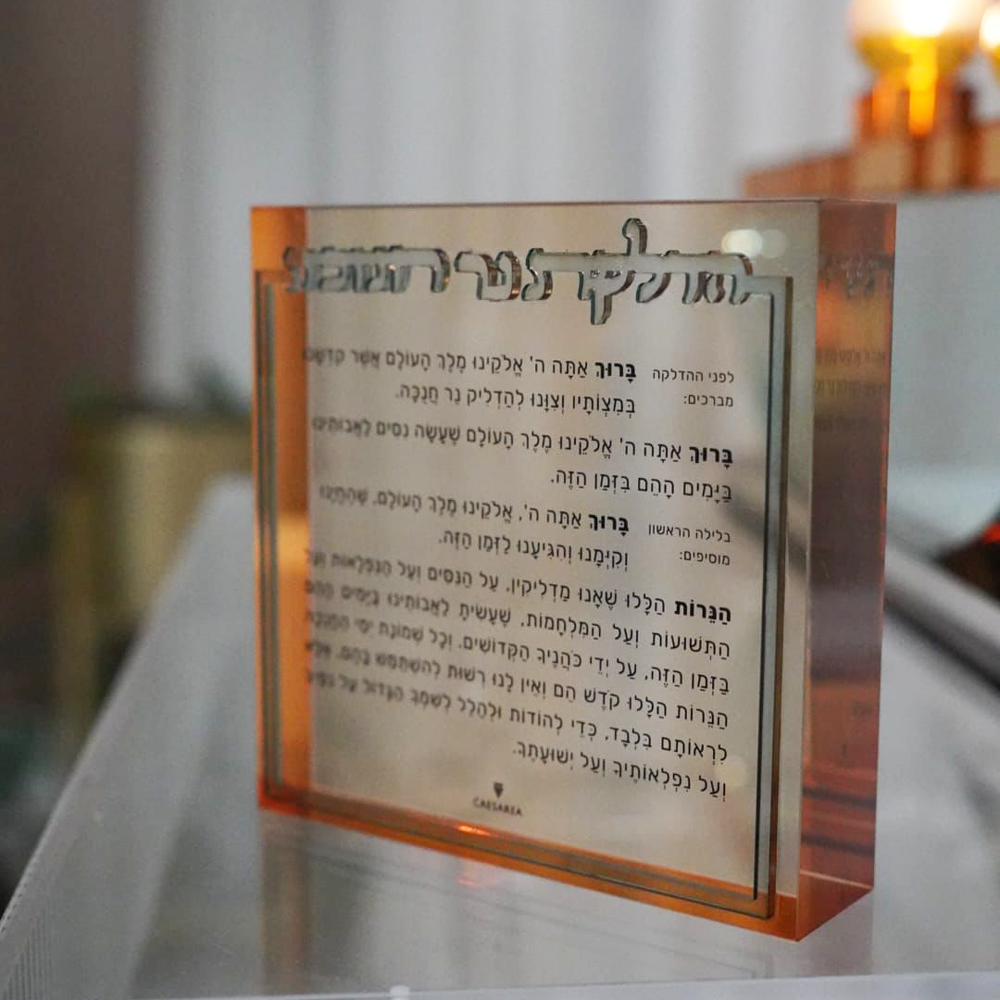 הדלקת
לפני ההדלקה
מברכים:
בָּרוּךְ אַתָּה ה' אֱלֹקֵינוּ מֶלֶךְ הָעוֹלָם אֲשֶׁר קִדְּשָׁנוּ
בְּמִצְוֹתָיו וְצִוָּנוּ לְהַדְלִיק נֵר חֲנֻכָּה.
בָּרוּךְ אַתָּה ה' אֱלֹקֵינוּ מֶלֶךְ הָעוֹלָם שֶׁעָשָׂה נִסִּים לַאֲבוֹתֵינוּ
בַּיָּמִים הָהֵם בַּזְּמַן הַזֶּה.
בלילה הראשון
מוסיפים:
בָּרוּךְ אַתָּה ה', אֱלֹקֵינוּ מֶלֶךְ הָעוֹלָם, שֶׁהֶחֱיָנוּ
וְקִיְּמָנוּ וְהִגִּיעָנוּ לַזְּמַן הַזֶּה.
הַנֵּרוֹת הַלָּלוּ שֶׁאָנוּ מַדְלִיקִין, עַל הַנִּסִּים וְעַל הַנִּפְלָאוֹת וְעַל
הַתְּשׁוּעוֹת וְעַל הַמִּלְחָמוֹת, שֶׁעָשִׂיתָ לַאֲבוֹתֵינוּ בַּיָּמִים הָהֵם
בַּזְּמַן הַזֶּה, עַל יְדֵי כֹּהֲנֶיךָ הַקְּדוֹשִׁים. וְכָל שְׁמוֹנַת יְמֵי הַחֲנֻכָּה
הַנֵּרוֹת הַלָּלוּ קֹדֶשׁ הֵם וְאֵין לָנוּ רְשׁוּת לְהִשְׁתַּמֵּשׁ בָּהֶם, אֶלָּא
לִרְאוֹתָם בִּלְבָד, כְּדֵי לְהוֹדוֹת וּלְהַלֵּל לְשִׁמְךָ הַגָּדוֹל עַל נִסֶּיךָ
וְעַל נִפְלְאוֹתֶיךָ וְעַל יְשׁוּעָתֶךָ.
CAESAREA